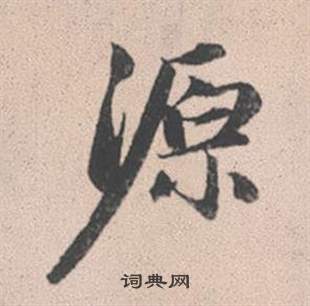 源
词典网